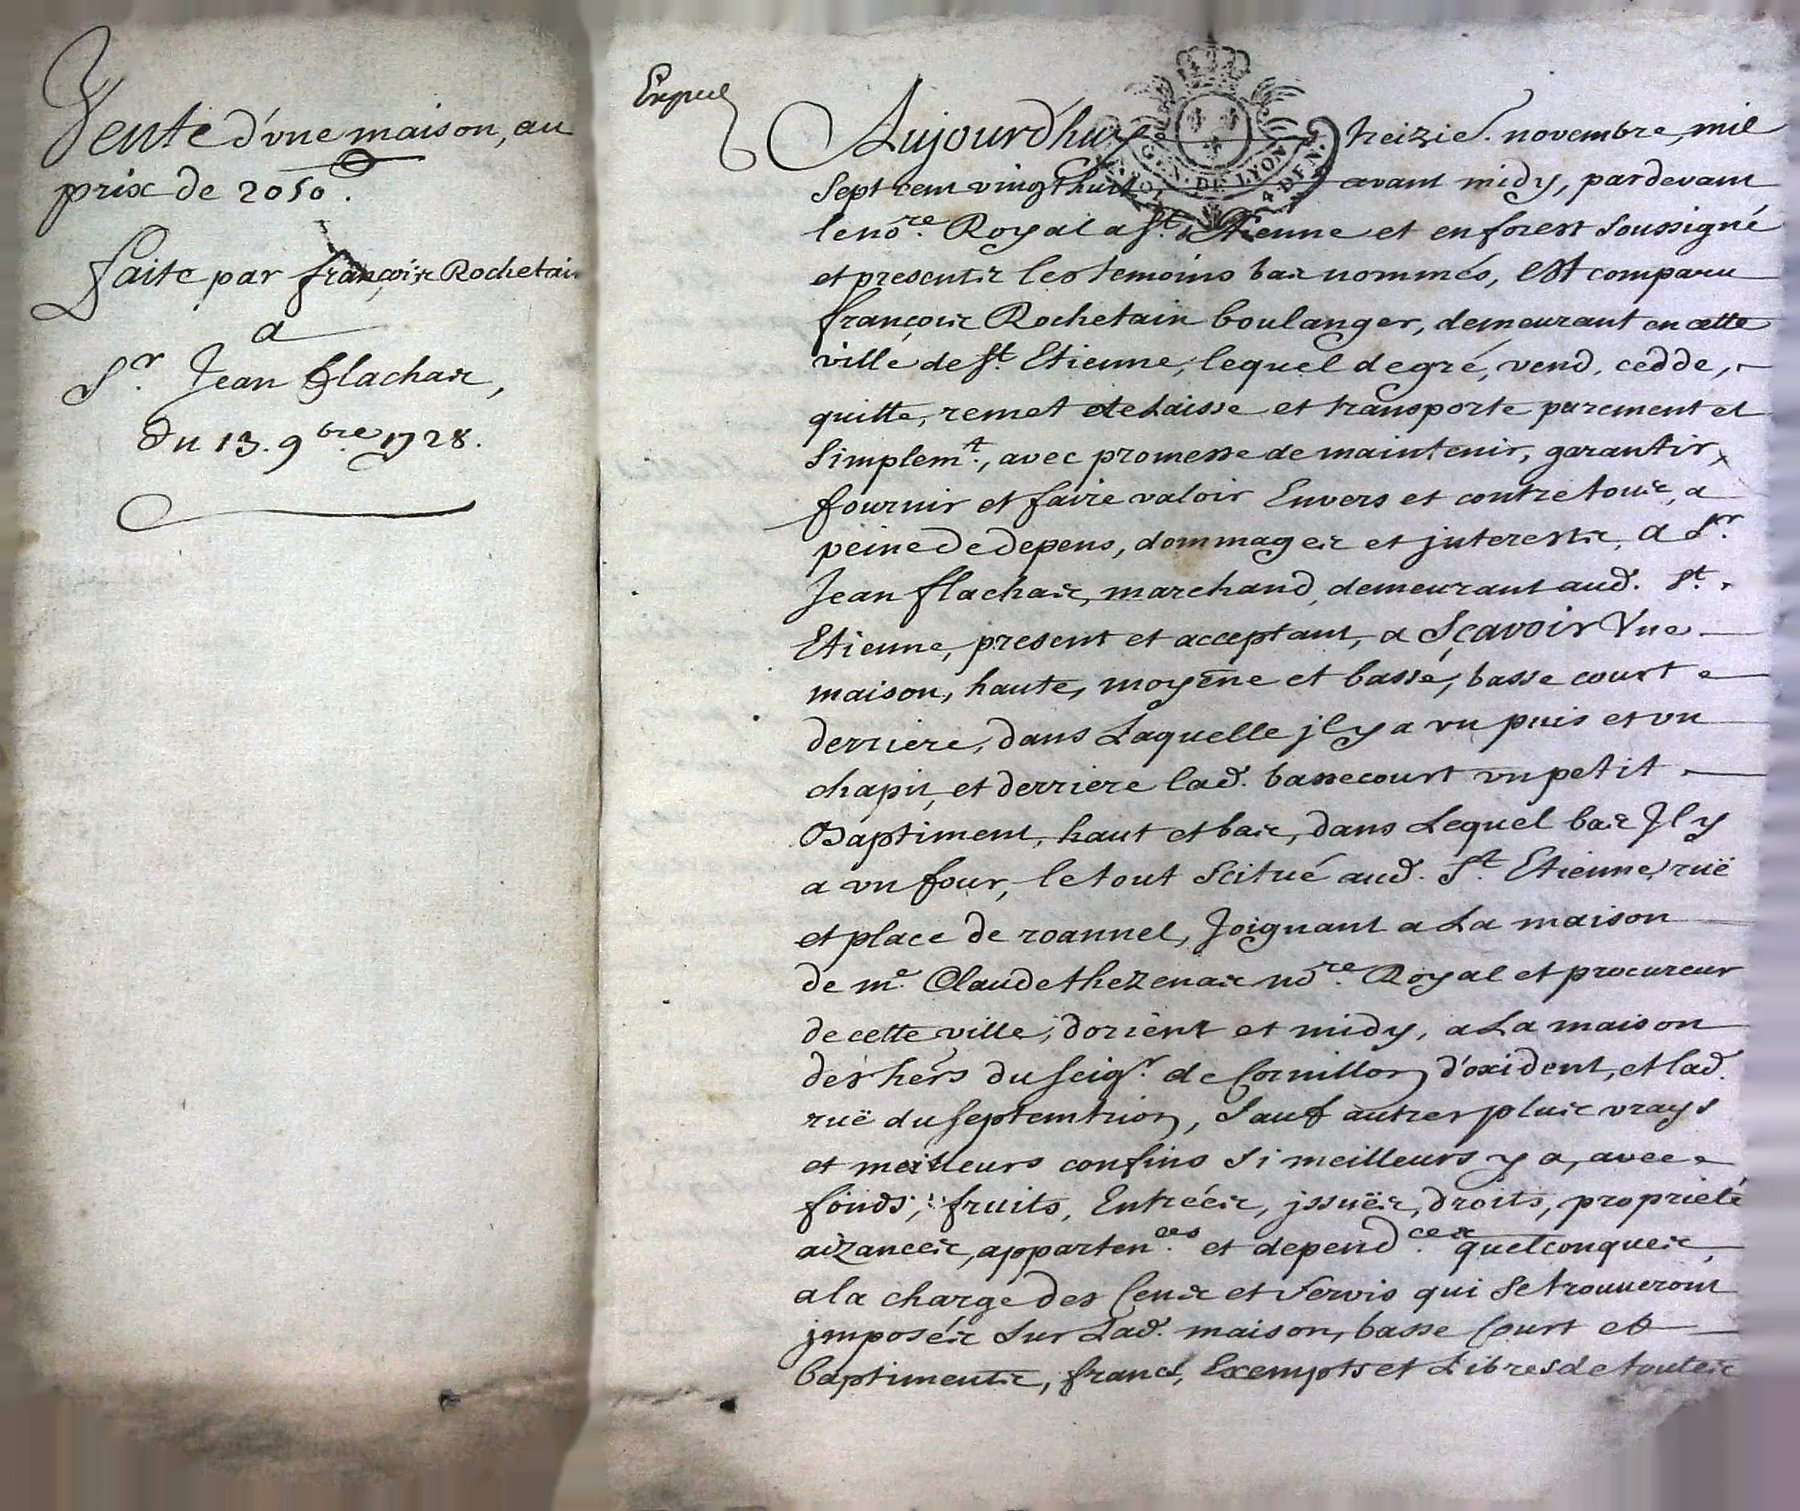 Vente d'vne maison, au
prix de 2050.
faite par françois Rochetain
a
Sr. Jean flachat,
du 13. 9bre. 1728.
Expié
GEN. DE LYON
4 DEN.
Aujourd'huy treizie. novembre, mil
sept cent vingt huit, avant midy, pardevant
le nore. Royal a St. Etienne et en forest soussigné
et presents les temoins bas nommés, est comparu
françois Rochetain boulanger, demeurant en cette
ville de St. Etienne, lequel de gré, vend, cedde,
quitte, remet et delaisse et transporte purement et
simplemt., avec promesse de maintenir, garantir,
fournir et faire valoir Envers et contre tous, a
peine de depens, dommages et jnterests, a Sr.
Jean flachas, marchand, demeurant aud. St.
Etienne, present et acceptant, a Sçavoir Vne
maison, haute, moyene et basse, basse court
derriere, dans Laquelle jl y a vn puis et vn
chapit, et derriere lad. basse court vn petit
Baptiment, haut et bas, dans Lequel bas Jl y
a vn four, le tout scitué aud. St. Etienne, ruë
et place de roannel, Joignant a La maison
de me. Claude thezenas nore. Royal et procureur
de cette ville, d'orient et midy, a La maison
des hers du seigr. de Cornillon d'oxident, et lad.
ruë du septemtrion, Sauf autres plus vrays
et meilleurs confins si meilleurs y a, avec
fonds, fruits, Entrées, jssuës, droits, proprieté
aizances, appartences. et dependces. quelconques,
a la charge des Cens et servis qui se trouueront
jmposés sur Lad. maison, basse Court et
baptiments, francs, Exempts et Libres de toutes